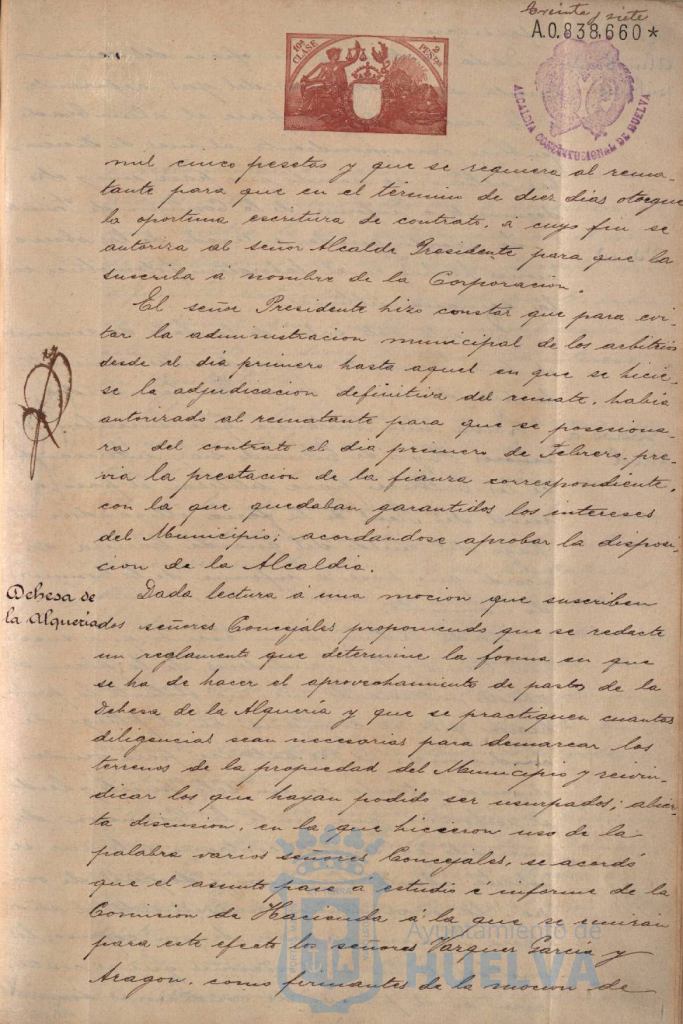 treinta y siete
A.0.838,660*
10ª CLASE
2 PESETAS
ALCALDIA CONSTITUCIONAL DE HUELVA
mil cinco pesetas y que se requiera al rema-
tante para que en el término de diez dias otorgue
la oportuna escritura de contrato, á cuyo fin se
autoriza al señor Alcalde Presidente para que la
suscriba á nombre de la Corporacion.
El señor Presidente hizo constar que para evi-
tar la administracion municipal de los arbitrios
desde el dia primero hasta aquel en que se hicie-
se la adjudicacion definitiva del remate, habia
autorizado al rematante para que se posesiona-
ra del contrato el dia primero de Febrero, pre-
via la prestacion de la fianza correspondiente,
con la que quedaban garantidos los intereses
del Municipio; acordandose aprobar la disposi-
cion de la Alcaldia.
Dehesa de
la Alqueria
Dada lectura á una mocion que suscriben
dos señores Concejales proponiendo que se redacte
un reglamento que determine la forma en que
se ha de hacer el aprovechamiento de pastos de la
Dehesa de la Alquería y que se practiquen cuantas
diligencias sean necesarias para demarcar los
terrenos de la propiedad del Municipio y reivin-
dicar los que hayan podido ser usurpados; abier-
ta discusion, en la que hicieron uso de la
palabra varios señores Concejales, se acordó
que el asunto pase á estudio é informe de la
Comision de Hacienda á la que se uniran
para este efecto los señores Vazquez García y
Aragon, como firmantes de la mocion de
Ayuntamiento de
HUELVA